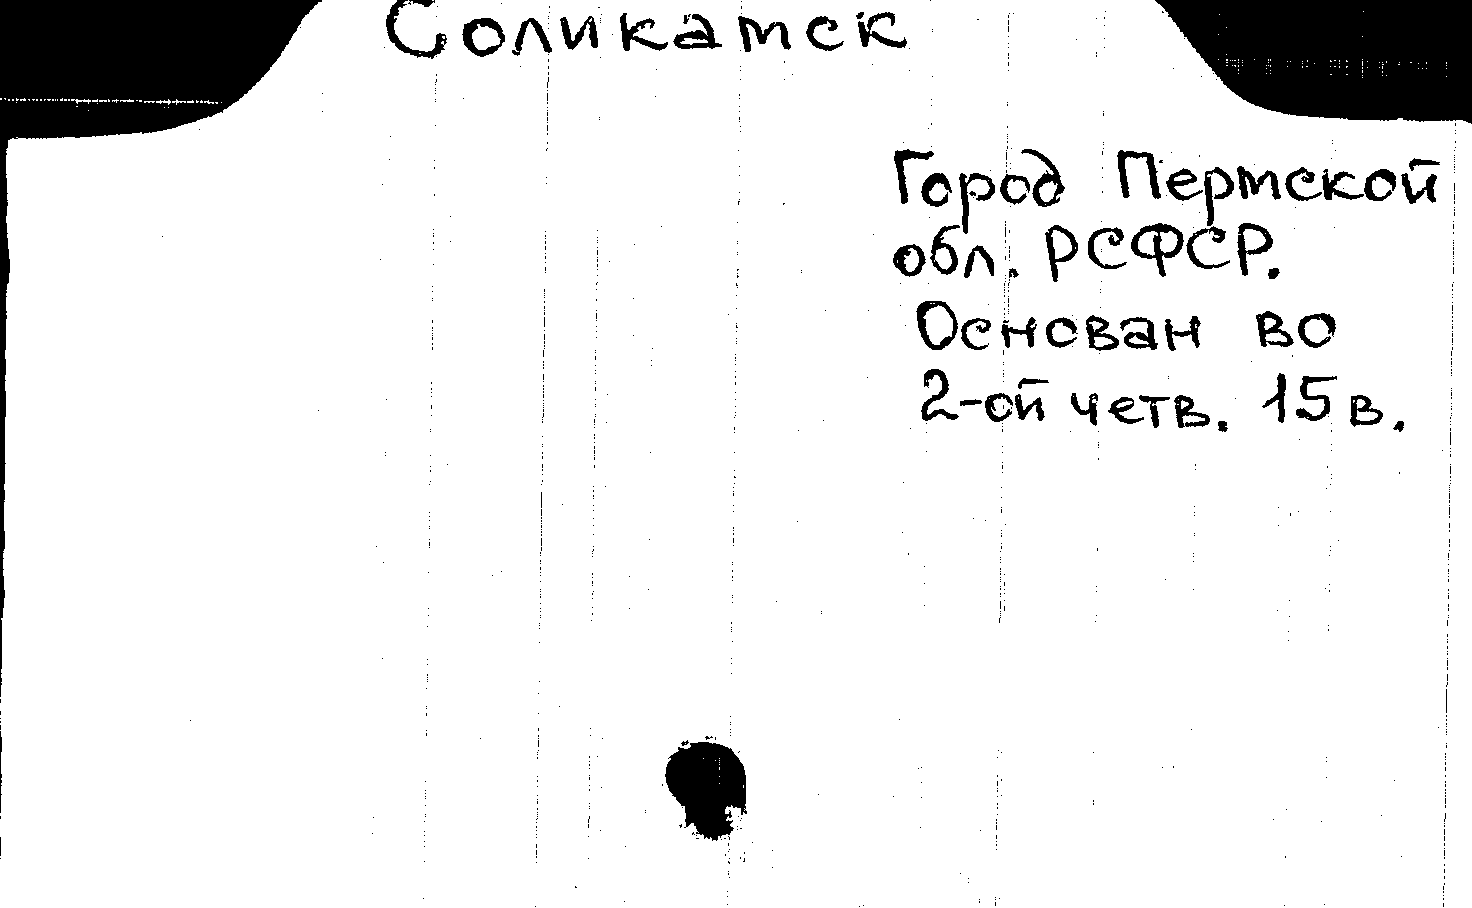 Соликамск
Город Пермской
обл. РСФСР.
Основан во
2-ой четв. 15 в.